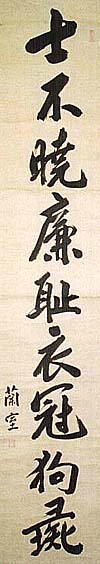 士不曉廉耻衣冠狗彘
蘭室